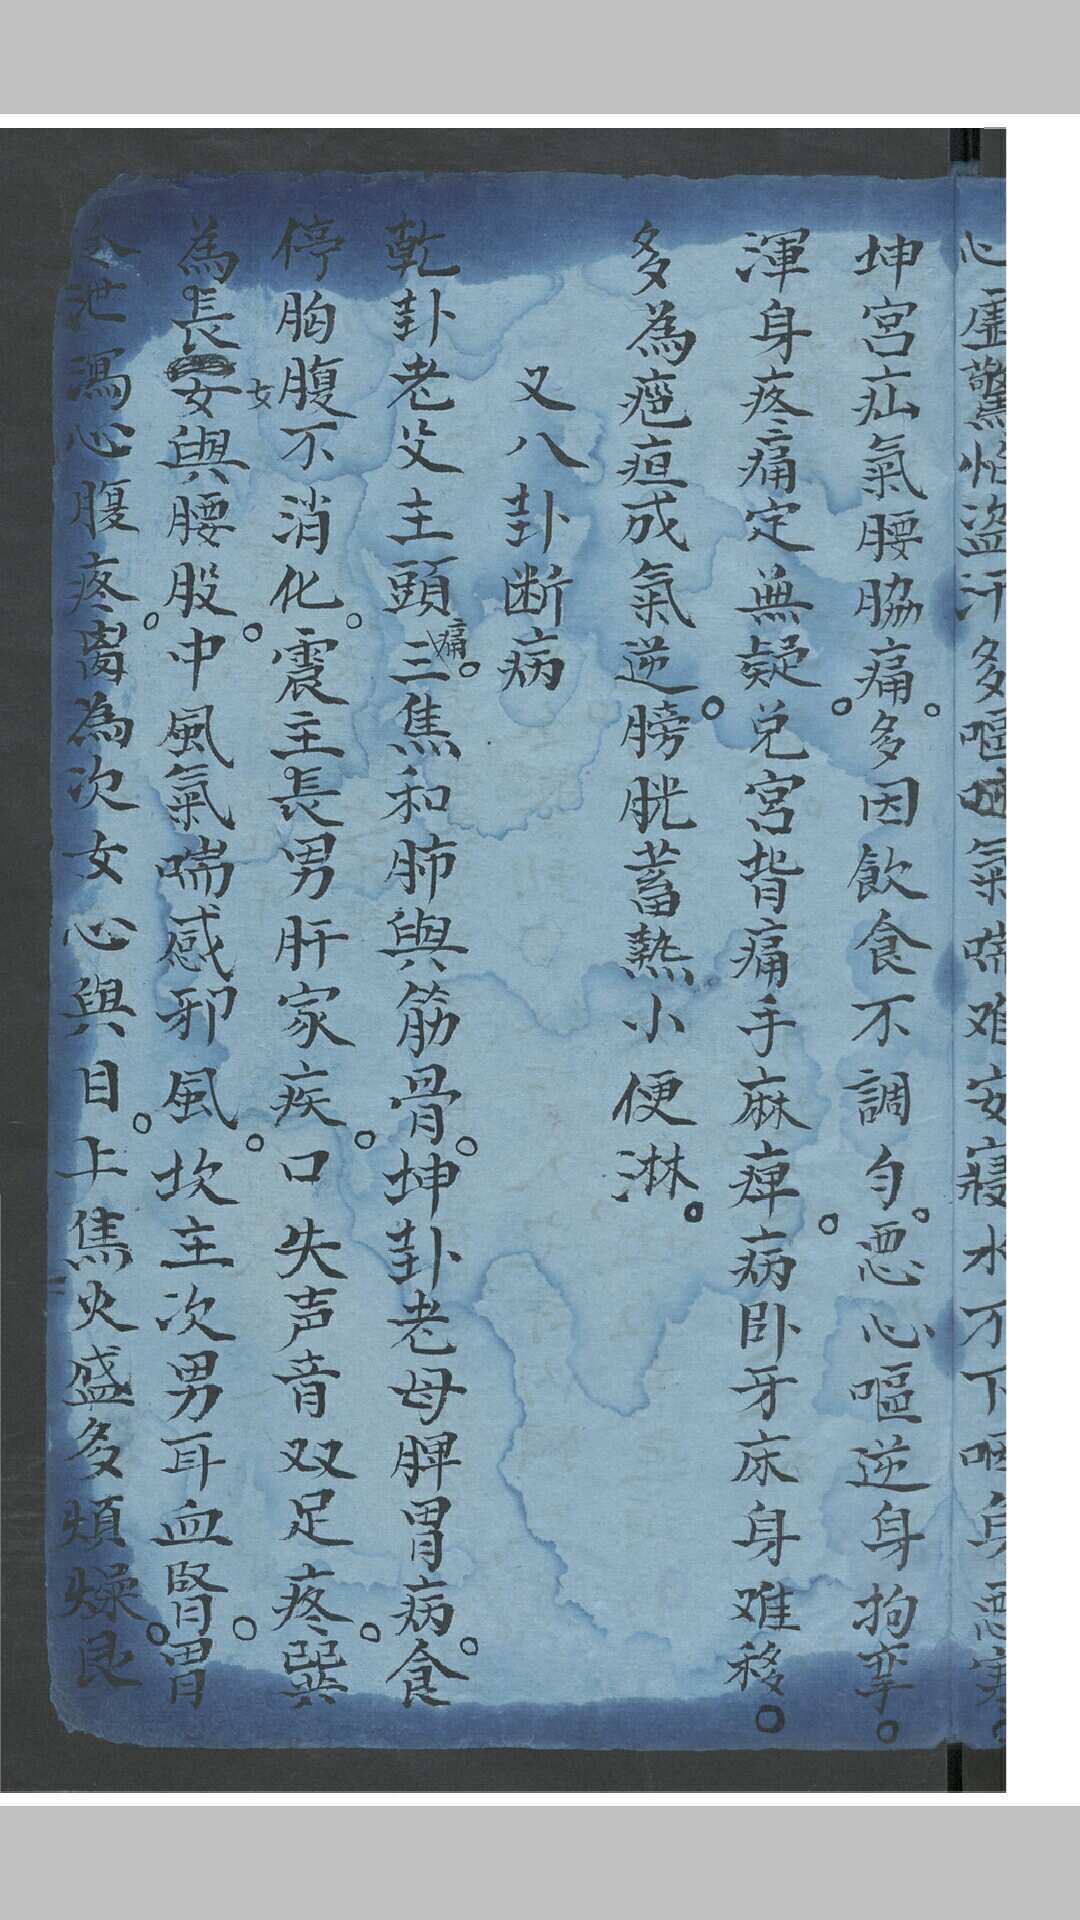 心虛驚怕盜汗多嘔吐氣喘难安寢水不下咽身惡寒
坤宮疝氣腰脇痛多因飲食不調勻惡心嘔逆身拘挛
渾身疼痛定無疑兌宮背痛手麻痺病卧牙床身难移
多為疸成氣逆膀胱蓄熱小便淋
又八卦断病
乾卦老父主頭痛三焦和肺與筋骨坤卦老母脾胃病食
停胸腹不消化震主長男肝家疾口失声音双足疼巽
為長女女與腰股中風氣喘感邪風坎主次男耳血腎胃
冷泄瀉心腹疼离為次女心與目上焦火盛多煩燥艮